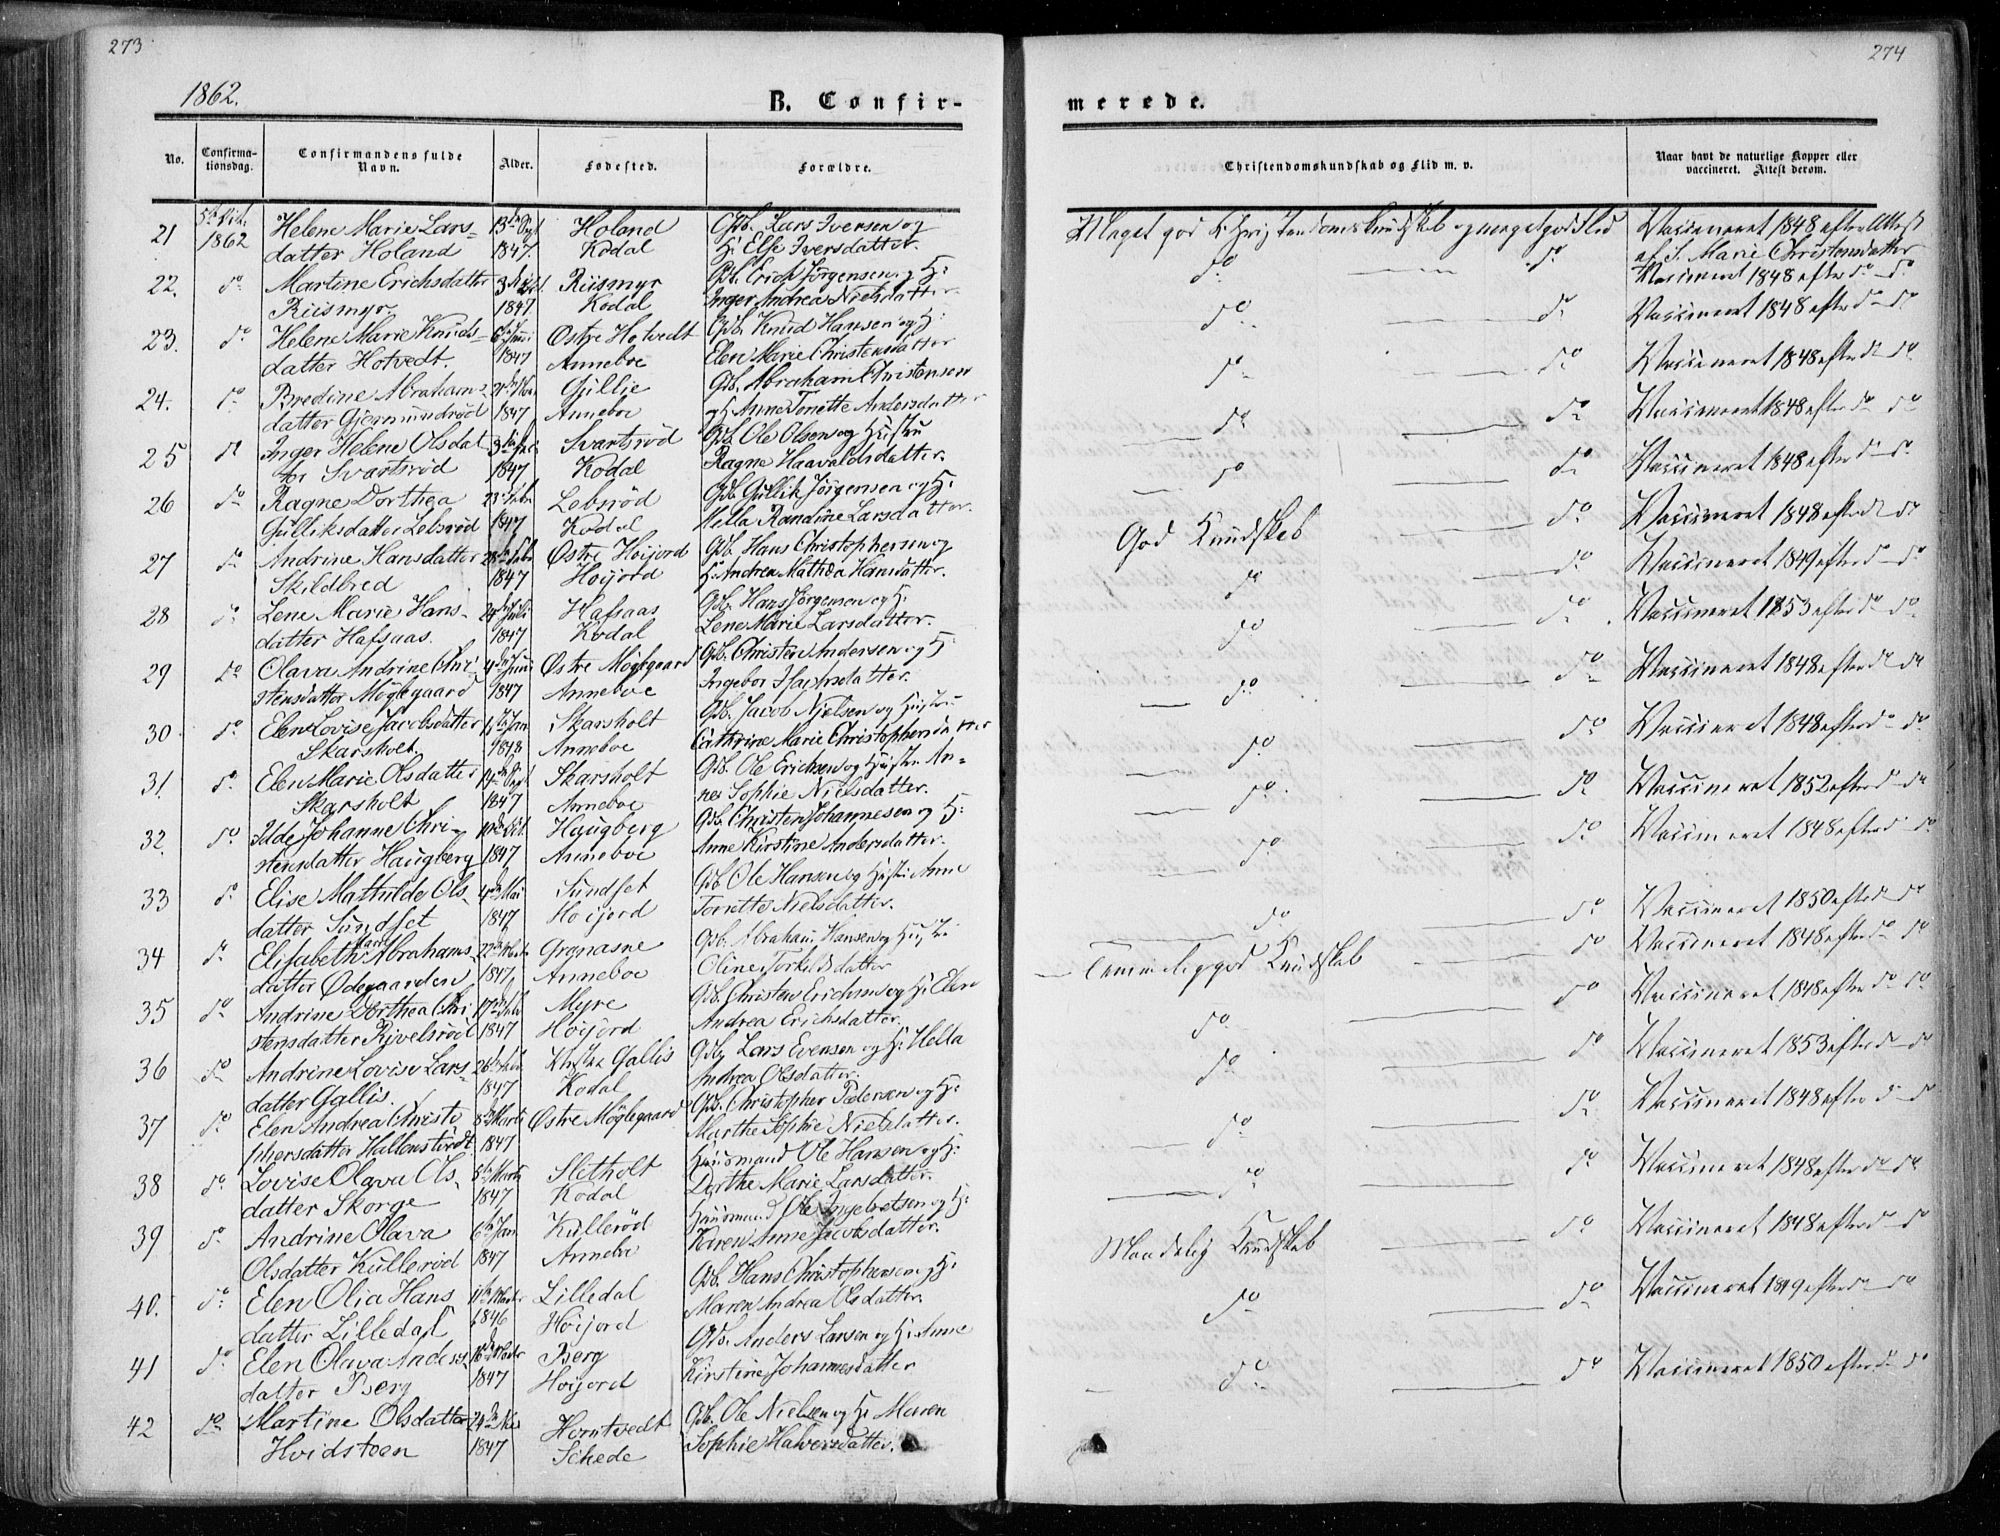 273
1862.
B. Confir-
No.
Confirma-
tionsdag.
Confirmandens fulde
Navn.
Alder.
Fødested.
Forældre.
21 5te Oct. 1862 Helene Marie Lars- 13de Sept Holand Gdb. Lars Iversen og
datter Holand 1847. Kodal H: Else Iversdatter.
22. do Martine Erichsdatter Riismyr Gdb. Erich Jørgensen og H:
Riismyr. 1847. Kodal Inger Andrea Nielsdatter.
23. do Helene Marie Knuds- 6te Juni Østre Hotvedt Gdb. Knud Hansen og H:
datter Hotvedt. 1847 Anneboe Elen Marie Christensdatter
24. do Bredine Abrahams- Gullie Gdb. Abraham Christensen
datter Gjermundrød 1847 Anneboe og H. Anne Tonette Andersdatter
25 do Inger Helene Olsdat Svartsrød Gdb. Ole Olsen og Hustru
ter Svartsrød 1847 Kodal Ragne Haavaldsdatter.
26 do Ragne Dorthea Lebsrød Gdb. Gullik Jørgensen og H:
Gulliksdatter Lebsrød 1847 Kodal Hella Randine Larsdatter.
27 do Andrine Hansdatter Østre Høijord Gdb. Hans Christophersen og
Skildbred 1847 Høijord H: Andrea Mathea Hansdatter.
28 do Lene Marie Hans- 24de Juli Hafsaas Gdb. Hans Jørgensen og H:
datter Hafsaas. 1847 Kodal Lene Marie Larsdatter.
29 do Olava Andrine Chri 4de Juni Østre Møglegaard Gdb. Christen Andersen og H:
stensdatter Møglegaard 1847 Anneboe Ingebor
30 do Elen Lovise Jacobsdatter Skarsholt Gdb. Jacob Nielsen og Hustru
Skarsholt. 1848 Anneboe Cathrine Marie Christophersdatter
31. do Elen Marie Olsdatter Skarsholt Gdb. Ole Erichsen og Hustru An-
Skarsholt 1847 Anneboe nes Sophie Nielsdatter.
32. do Ilde Johanne Chri- Haugberg Gdb. Christen Johannesen og H:
stensdatter Haugberg 1847 Anneboe Anne Kirstine Andersdatter.
33 do Elise Mathilde Ols- 4de Mai Sundset Gdb. Ole Hansen og Hustru Anne
datter Sundset 1847 Høijord Tonette Nielsdatter.
34 do Elisabeth Marie Abrahams- 22de Marts Grønasne Gdb. Abraham Hansen og Hustru
datter Ødegaarden 1847. Anneboe Oline Torkildsdatter
35 do Andrine Dorthea Chri 17de Myre Gdb. Christen Erichsen og H: Elen
stensdatter Rivelsrød 1847 Høijord Andrea Erichsdatter.
36 do Andrine Lovise Lars- 26de Gallis Gdb. Lars Evensen og H: Hella
datter Gallis. 1847 Kodal Andrea Olsdatter.
37 do Elen Andrea Christo 8de Marts Østre Møglegaard Gdb. Christopher Pedersen og H:
phersdatter Hallenstvedt 1847 Marthe Sophie Nielsdatter.
38 do Lovise Olava Ols- 5te Marts Sletholt Huusmand Ole Hansen og H:
datter Skorge 1847 Kodal Dorthe Marie Larsdatter.
39 do Andrine Olava 6te Jan Kullerød Huusmand Ole Ingebretsen og H:
Olsdatter Kullerød 1847 Anneboe Karen Anne Jacobsdatter.
40. do Elen Olia Hans 11te Lilledal Gdb. Hans Christophersen og H:
datter Lilledal 1846 Høijord Maren Andrea Olsdatter.
41 do Elen Olava Anders- 16de Berg Gdb. Anders Larsen og H: Anne
datter Berg 1847 Høijord Kirstine Johannesdatter
42 do Martine Olsdatter 24de Horntvedt Gdb. Ole Nielsen og H: Maren
Hvidsteen 1847 Schede Sophie Halversdatter.
274
merede.
Christendomskundskab og Flid m. v.
Naar havt de naturlige Kopper eller
vaccineret. Attest derom.
Meget god Christendomskundskab og meget god Flid Vaccineret 1848 efter Attest
af S. Marie Christensdatter
do do Vaccineret 1848 efter do do
do do Vaccineret 1848 efter do do
do do Vaccineret 1848 efter do do
do do Vaccineret 1848 efter do do
do do Vaccineret 1848 efter do do
God Kundskab do Vaccineret 1848 efter do do
do do Vaccineret 1849 efter do do
do do Vaccineret 1853 efter do do
do do Vaccineret 1848 efter do do
do do Vaccineret 1848 efter do do
do do Vaccineret 1852 efter do do
do Vaccineret 1848 efter do do
do do Vaccineret 1850 efter do do
Temmelig god Kundskab do Vaccineret 1848 efter do do
do do Vaccineret 1848 efter do do
do do Vaccineret 1853 efter do do
do do Vaccineret 1848 efter do do
do do Vaccineret 1848 efter do do
Maadelig Kundskab do Vaccineret 1848 efter do do
do do Vaccineret 1849 efter do do
do do Vaccineret 1850 efter do do